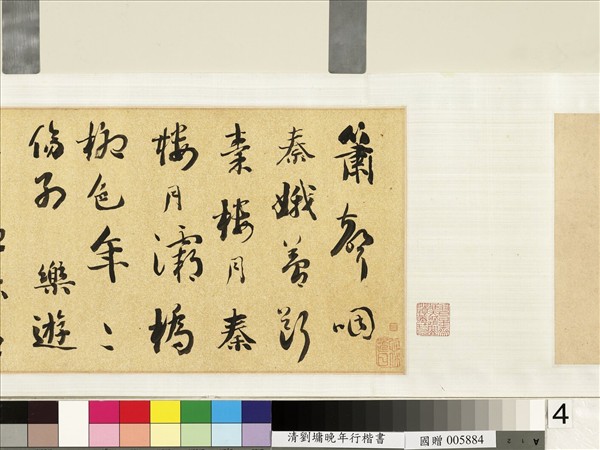 簫聲咽
秦娥夢斷
秦樓月秦
樓月灞橋
柳色年〻
傷別樂遊
4
清劉墉晚年行楷書
國贈 005884